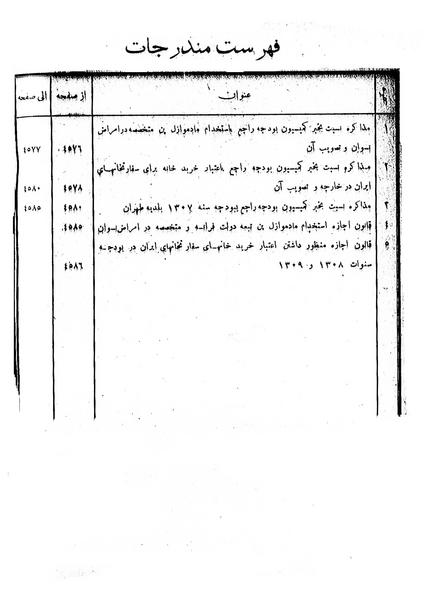 فهرست مندرجات
عنوان از صفحه الی صفحه
۱ مذاکره نسبت بخبر کمیسیون بودجه راجع باستخدام مادموازل بن متخصصه در امراض
نسوان و تصویب آن ٤٥٧٦ ٤٥٧٧
۲ مذاکره نسبت بخبر کمیسیون بودجه راجع باعتبار خرید خانه برای سفارتخانهای
ایران در خارجه و تصویب آن ٤٥٧٨ ٤٥٨٠
۳ مذاکره نسبت بخبر کمیسیون بودجه راجع ببودجه سنه ۱۳۰۷ بلدیه طهران ٤٥٨٠ ٤٥٨٥
٤ قانون اجازه استخدام مادموازل بن تبعه دولت فرانسه و متخصصه در امراض نسوان ٤٥٨٥
٥ قانون اجازه منظور داشتن اعتبار خرید خانهای سفارتخانهای ایران در بودجه
سنوات ۱۳۰۸ و ۱۳۰۹ ٤٥٨٦